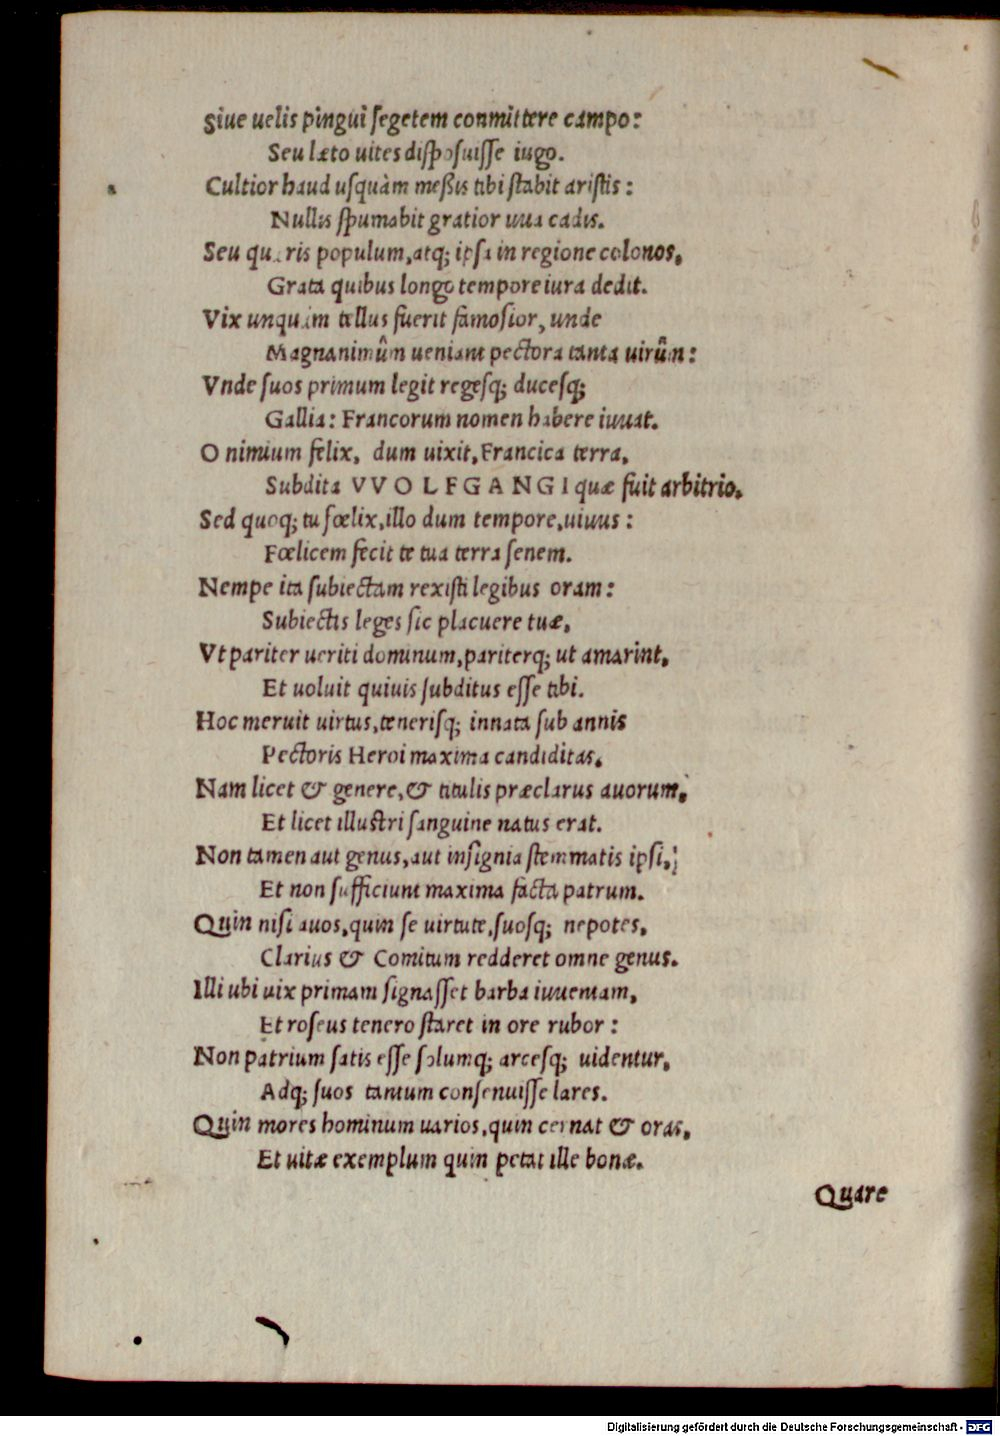 Siue uelis pingui segetem conmittere campo:
Seu læto uites disposuisse iugo.
Cultior haud usquàm meßis tibi stabit aristis:
Nullis spumabit gratior uua cadis.
Seu quæris populum, atq; ipsa in regione colonos,
Grata quibus longo tempore iura dedit.
Vix unquam tellus fuerit famosior, unde
Magnanimûm ueniant pectora tanta uirûm:
Vnde suos primum legit regesq; ducesq;
Gallia: Francorum nomen habere iuuat.
O nimium felix, dum uixit, Francica terra,
Subdita VVOLFGANGI quæ fuit arbitrio.
Sed quoq; tu fœlix, illo dum tempore, uiuus:
Fœlicem fecit te tua terra senem.
Nempe ita subiectam rexisti legibus oram:
Subiectis leges sic placuere tuæ,
Vt pariter ueriti dominum, pariterq; ut amarint,
Et uoluit quiuis subditus esse tibi.
Hoc meruit uirtus, tenerisq; innata sub annis
Pectoris Heroi maxima candiditas.
Nam licet & genere, & titulis præclarus auorum,
Et licet illustri sanguine natus erat.
Non tamen aut genus, aut insignia stemmatis ipsi,
Et non sufficiunt maxima facta patrum.
Quin nisi auos, quin se uirtute, suosq; nepotes,
Clarius & Comitum redderet omne genus.
Illi ubi uix primam signasset barba iuuentam,
Et roseus tenero staret in ore rubor:
Non patrium satis esse solumq; arcesq; uidentur,
Adq; suos tantum consenuisse lares.
Quin mores hominum uarios, quin cernat & oras,
Et uitæ exemplum quin petat ille bonæ.
Quare
Digitalisierung gefördert durch die Deutsche Forschungsgemeinschaft - DFG